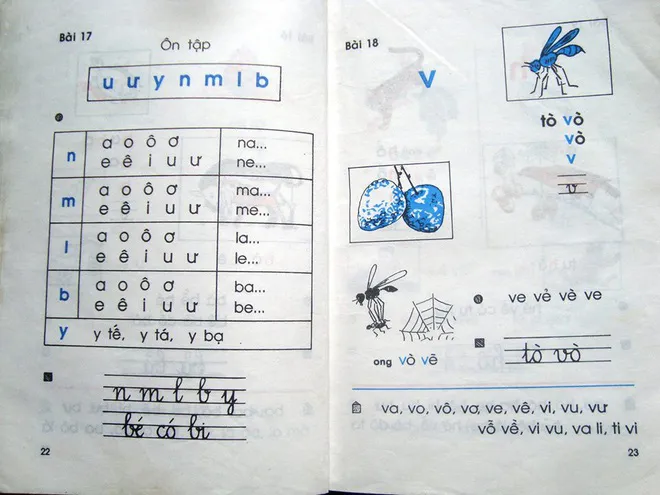 Bài 17
Ôn tập
u ư y n m l b
n
a o ô ơ
e ê i u ư
na...
ne...
m
a o ô ơ
e ê i u ư
ma...
me...
l
a o ô ơ
e ê i u ư
la...
le...
b
a o ô ơ
e ê i u ư
ba...
be...
y
y tế, y tá, y bạ
n m l b y
bé có bi
22
Bài 18
v
tò vò
vò
v
v
ong vò vẽ
ve vẻ vè ve
tò vò
va, vo, vô, vơ, ve, vê, vi, vu, vư
vỗ về, vi vu, va li, ti vi
23